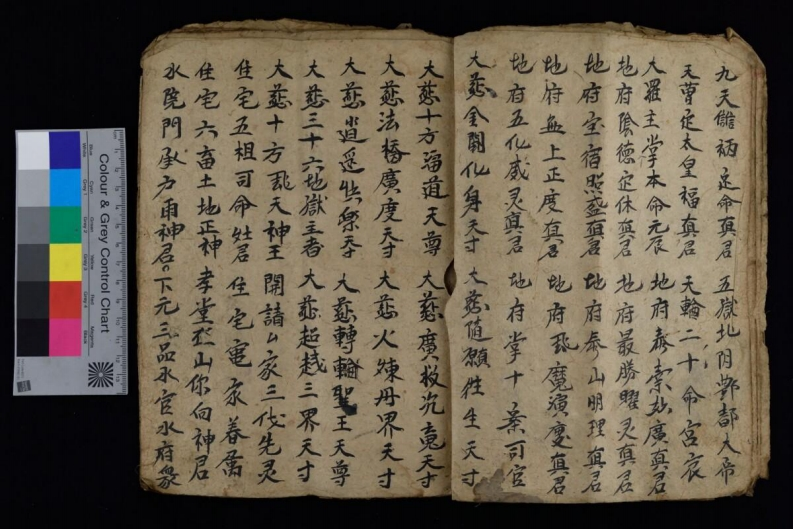 九天儲祸定命真君 五嶽北阴酆都大帝
天曹定太皇福真君 天輪二十命宮衣
大羅主掌本命元辰 地府泰素妙廣真君
地府陰德定休真君 地府最勝曜灵真君
地府宝宿熙盛真君 地府泰山明理真君
地府無上正度真君 地府飛魔演慶真君
地府五化威灵真君 地府掌十案司官
大慈金闕化身天寸 大慈随願往生天寸
大慈十方福道天尊 大慈廣救沉魂天寸
大慈法橋廣度天寸 大慈火煉丹界天寸
大慈逍遥快樂天寸 大慈轉輪聖王天尊
大慈三十六地獄主者 大慈超越三界天寸
大慈十方飛天神王 開請厶家三代先灵
住宅五祖司命灶君 住宅竈家眷属
住宅六畜土地正神 孝堂坐山你向神君
水院門承力雨神君 下元三品水官水府衆
Colour & Grey Control Chart
Blue Cyan Green Yellow Red Magenta
White Grey Black